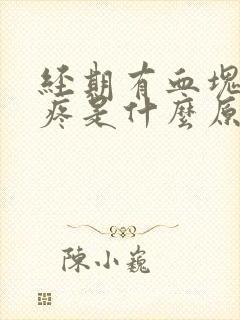 經期有血塊
疼是什麼原
陳小巍